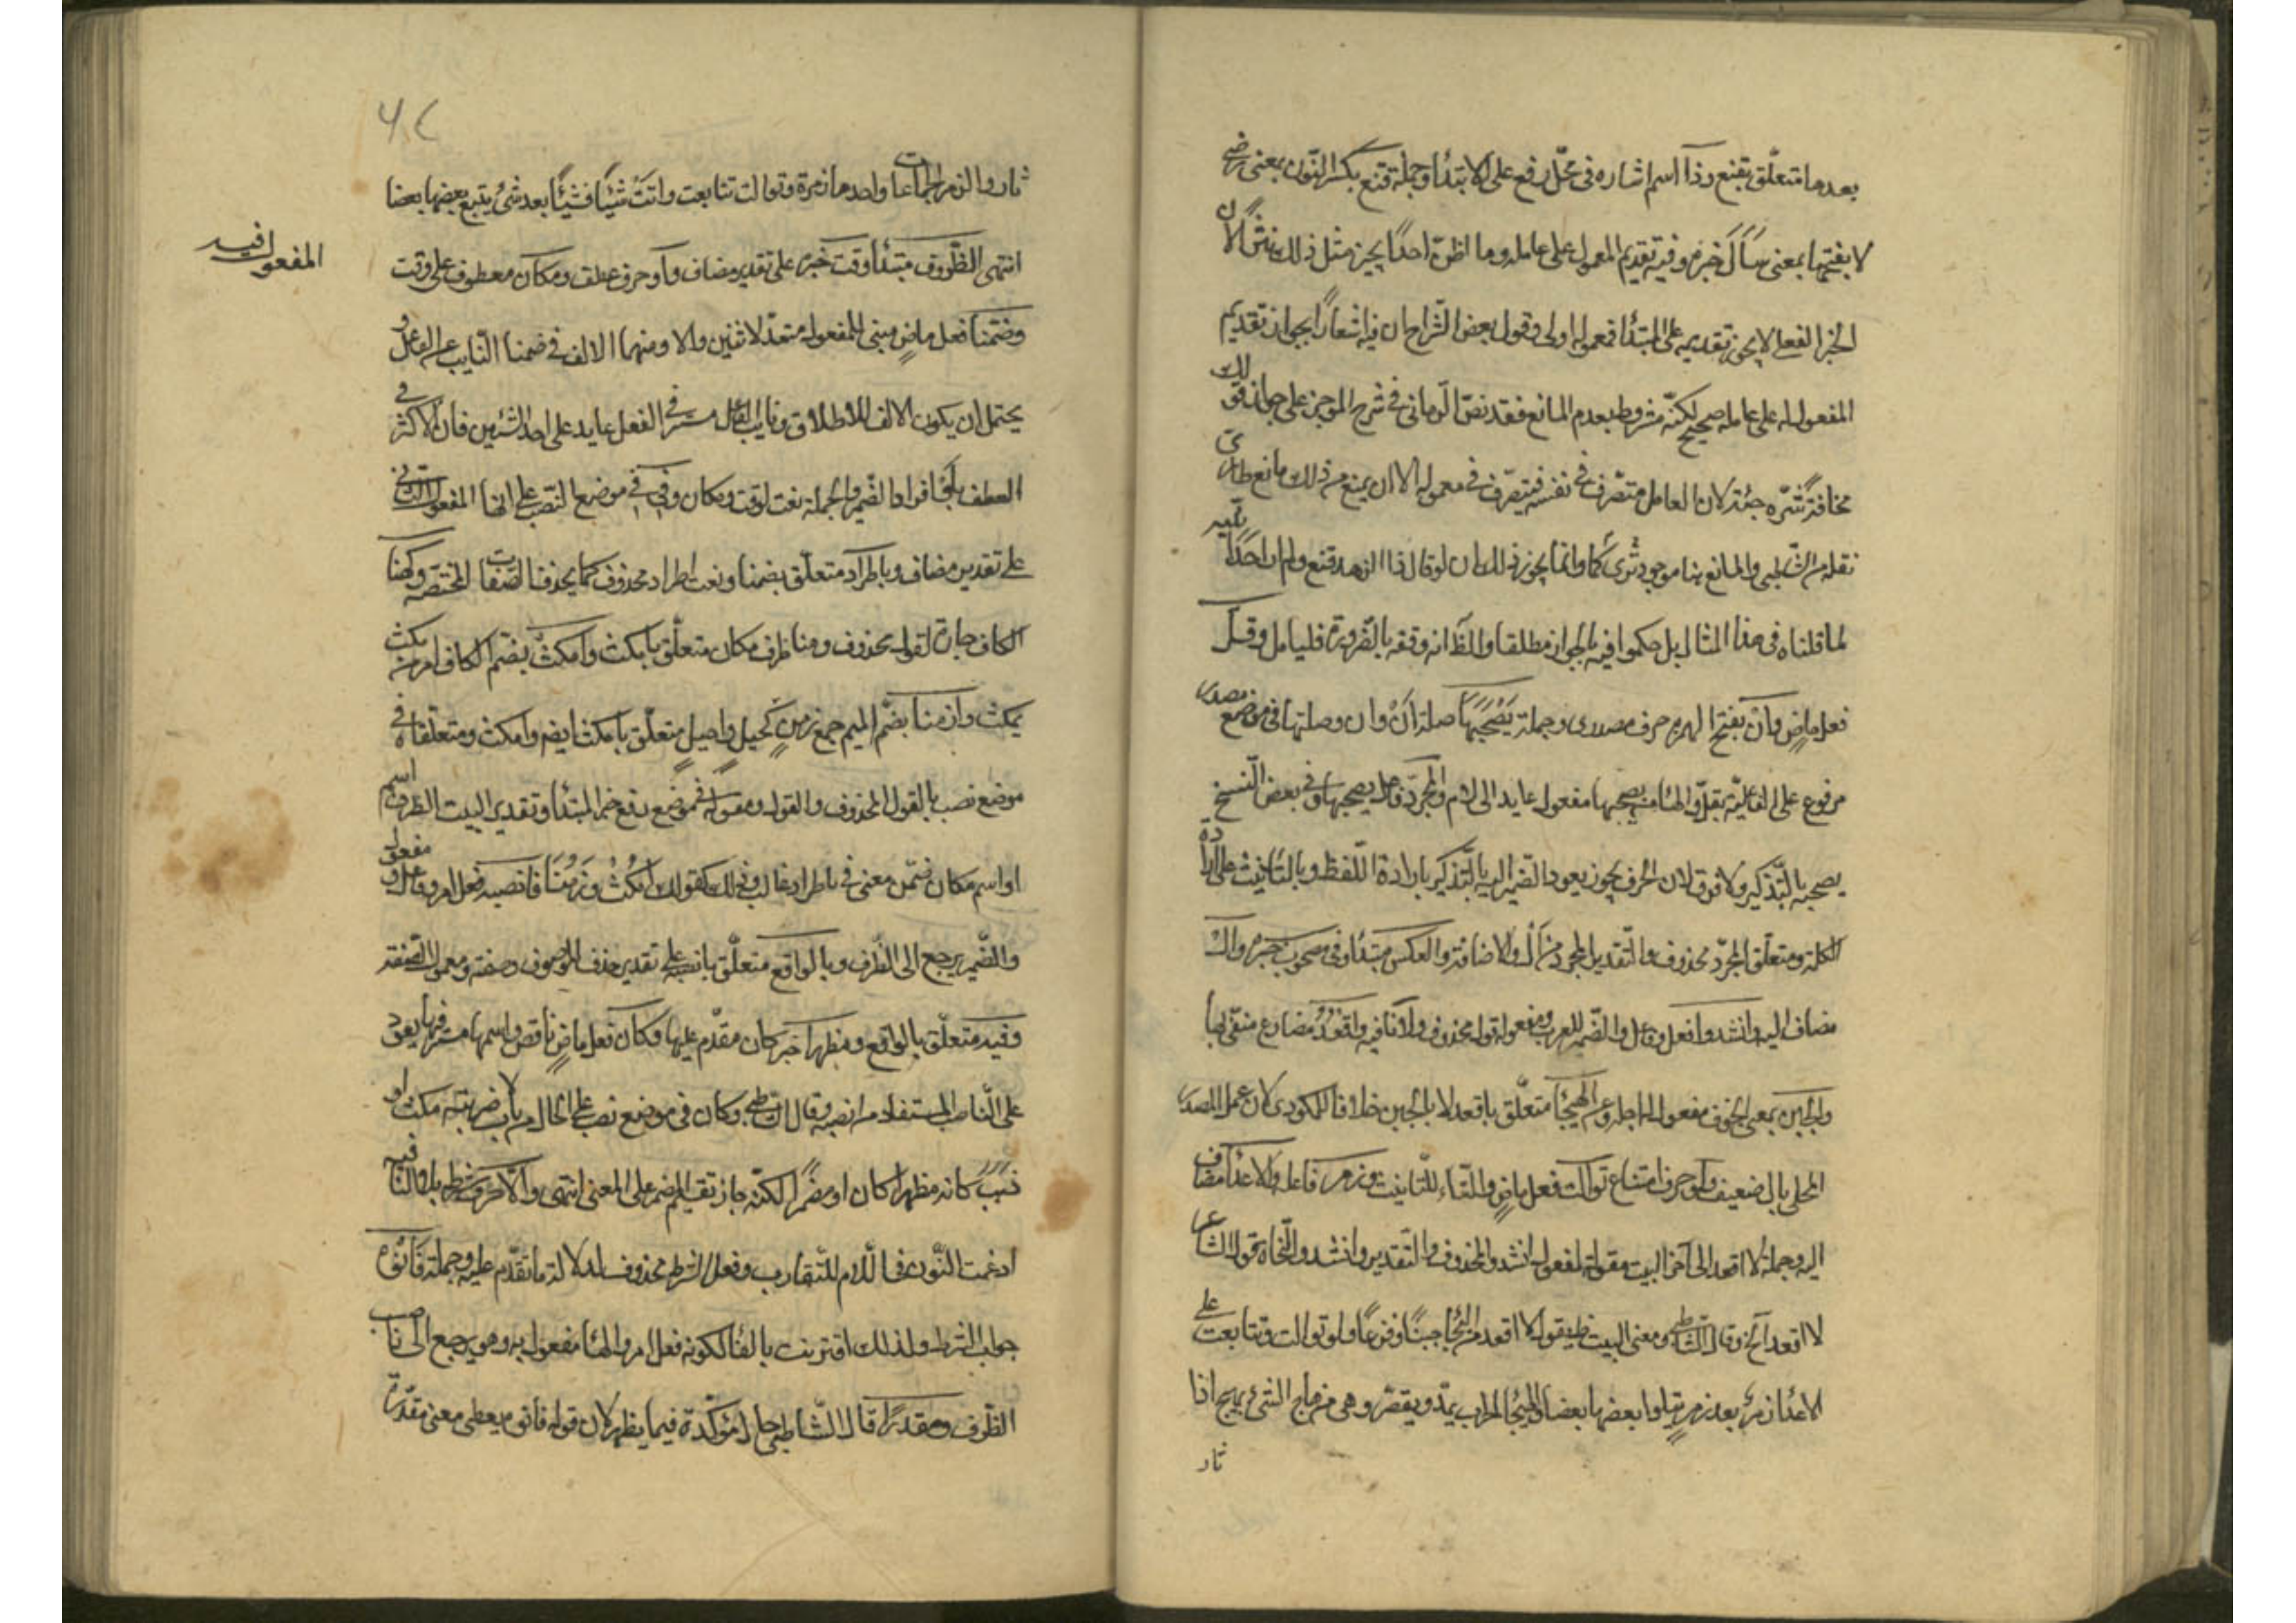 بعدها متعلّق بقنع وذا اسم اشاره في محلّ رفع على الابتدأ وجملة قنع بكسر النّون بمعنى رضى
لا بفتحها بمعنى سأل خبره وفيه تقديم المعمول على عامله وما اظنّ احدًا يجيز مثل ذلك نثرًا لان
الخبر الفعلى لا يجوز تقديمه على المبتدأ فمعموله اولى وقول بعض الشّراح ان فيه اشعارًا بجواز تقديم
المفعول له على عامله صحيح لكنّه مشروط بعدم المانع فقد نصّ الرّمانى في شرح الموجز على جواز قولك
مخافة شرّه جئته لان العامل متصّرف في نفسه فيتصّرف في معموله الا ان يمنع من ذلك مانع طارئ
نقله الشّاطبى والمانع هنا موجود كما ترى وانما يجوز ذلك ان لو قال ذا الزهد قنع ولم ار احدًا تنبه
لما قلناه في هذا المثال بل حكموا فيه بالجواز مطلقا والظّ انه وقفه بالضّرورة فليتامل وقلّ
فعل ماض وان بفتح الهمزه حرف مصدرى وجملة يصحبها صلة ان وان وصلتها في موضع مصدر
مرفوع على الفاعليّة بقلّ والهاء من يصحبها مفعول عايد الى اللام والمجرّد فاعل يصحبها وفى بعض النّسخ
يصحبه بالتّذكير ولا فرق لان الحرف يجوز يعود الضّمير اليه بالتّذكير بارادة اللّفظ وبالتّانيث على ارادة
الكلمة ومتعلّق المجرّد محذوف والتّقدير المجرد من ال والاضافة والعكس مبتدأ وفى مصحوب خبره وال
مضاف اليه وانشدوا فعل وفاعل والضّمير للعرب ومفعوله قوله محذوف ولا نافيه واقعد مضارع منفى بها
والجبن بمعنى الخوف مفعول لاجله وعن الهيجأ متعلّق باقعد لا بالجبن خلافا للمكودى لان عمل المصدر
المحلى بال ضعيف ولو حرف امتناع توالت فعل ماض والتّاء للتّانيث وزمر فاعله والاعداء مضاف
اليه وجملة لا اقعد الى آخر البيت مقولة لمفعول انشدوا المحذوف والتّقدير وانشدوا النّحاة قول الشّاعر
لا اقعد آلخ وقال الشّاطبى ومعنى البيت ظ يقول لا اقعد من الهيجأ جبنًا وفزعًا ولو توالت وتتابعت على
الاعداء زمرة بعد زمرة يتلوا بعضها بعضا والهيجأ الحرب يمدّ ويقصّر وهى من هاج الشئ يهيج اذا
ثار
ثار والزمر الجماعات واحدها زمرة وتوالت تتابعت واتت شيئًا فشيئًا بعد شئ يتبع بعضها بعضا
المفعول فيه
انتهى الظّروف مبتدأ وقت خبره على تقدير مضاف وأو حرف عطف ومكان معطوف على وقت
وضمّنا فعل ماض مبنى للمفعول متعدّ لاثنين والاول منهما الالف في ضمنا النّايب عن الفاعل و
يحتمل ان يكون الالف للاطلاق ونايب الفاعل مستتر في الفعل عايد على احد الشّيئين فان الاكثر في
العطف باو افراد الضّمير والجملة نعت لوقت ومكان وفى في موضع النّصب على انها المفعول الثانى
على تقدير مضاف وباطراد متعلّق بضمنا ونعت اطراد محذوف كما يحذف الصّفات المختصّه وكهنا
الكاف جارة لقول محذوف وهنا ظرف مكان متعلّق بامكث وامكث بضّم الكاف امر من مكث
يمكث وازمنا بضّم الميم جمع زمن كحبل واحبل متعلّق بامكث ايضا وامكث ومتعلّقاه في
موضع نصب بالقول المحذوف والقول ومقوله في موضع رفع خبر المبتدأ وتقدير البيت الظرف اسم
او اسم مكان ضمّن معنى في باطراد غالب وذلك كقولك امكث هنا وزمنا فانصبه فعل امر وفاعل ومفعول
والضّمير يرجع الى الظّرف وبالواقع متعلّق بانصبه على تقدير حذف الموصوف وصفته ومعمول الصّفة
وفيه متعلّق بالواقع ومظهرا خبر كان مقدّم عليها وكان فعل ماض ناقص واسمها مستتر فيها يعود
على النّاصب المستفاد من انصبه وقال الشّاطبى وكان في موضع نصب على الحال من باب لاضربنّه مكث او
ذهب كانه مظهرا كان او مضمرًا لكنّه جاز تقديم المضمر على المعنى انتهى والا حرف شرط بلا النّافيه
ادغمت النّون في اللّام للتّقارب وفعل الشرط محذوف لدلالة ما تقدّم عليه وجملة فانوه
جواب الشرط ولذلك اقترنت بالفاء لكونه فعل امر والهاء مفعول به وهو يرجع الى ناصب
الظّرف ومقدرًا قال الشّاطبى حال مؤكّدة فيما يظهر لان قوله فانوه يعطى معنى مقدّرة